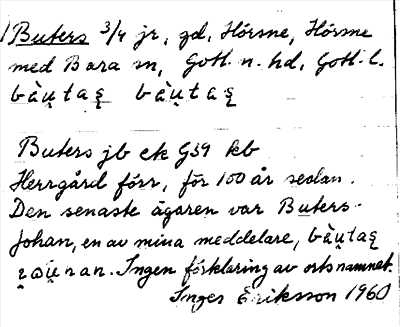 Buters 3/4 jr, gd, Hörsne, Hörsne
med Bara sn, Gotl. n. hd, Gotl. l.
bàu̯tas̨ bàu̯tas̨
Buters jb ek G59 kb
Herrgård förr, för 100 år sedan.
Den senaste ägaren var Buters-
Johan, en av mina meddelare, bàu̯tas̨
Ingen förklaring av ortsnamnet.
Inger Eriksson 1960